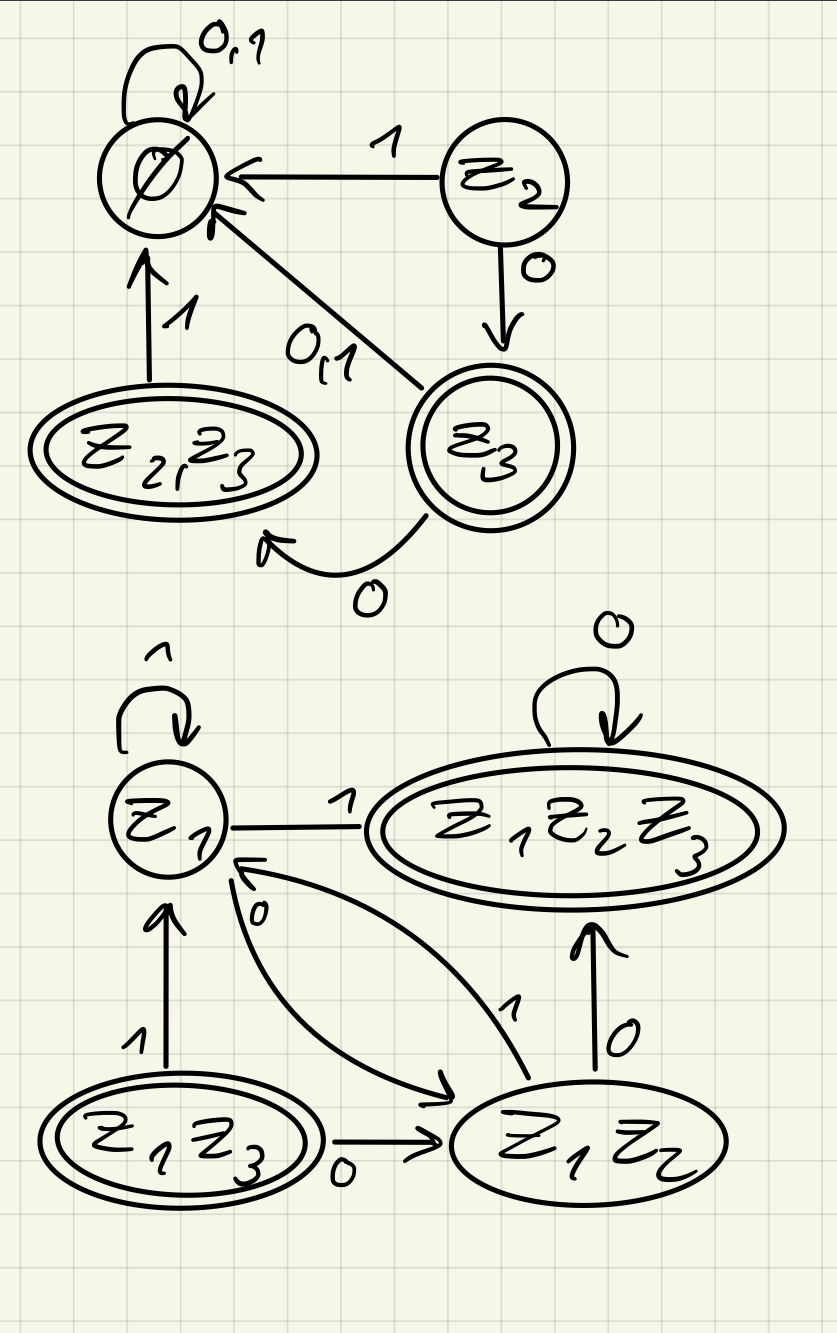 0,1
1
Ø
z2
0
1
0,1
z2,z3
z3
0
0
1
z1
1
z1z2z3
0
1
1
0
z1z3
0
z1z2